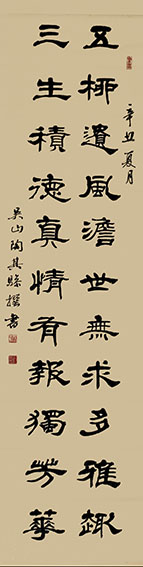 辛丑夏月
五柳遺風澹世無求多雅趣
三生積德真情有報獨芳華
吳山陶其撰書